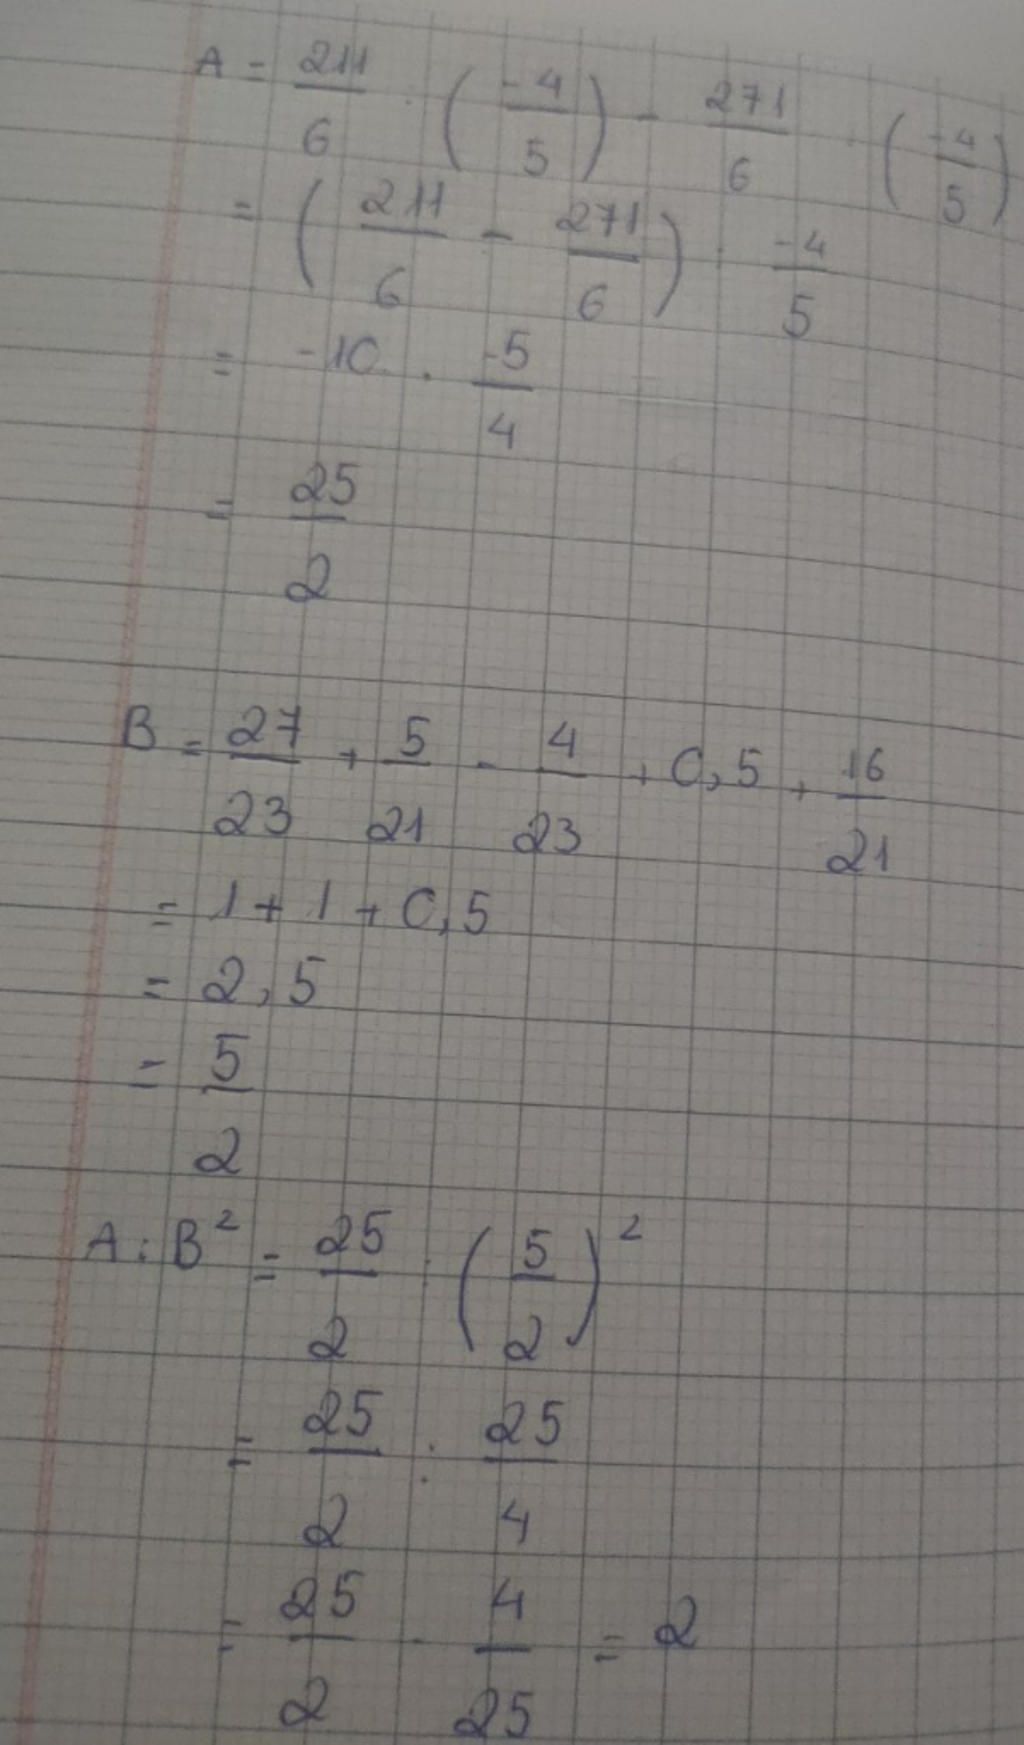 A = 211/6 : (-4/5) - 271/6 : (-4/5)
= (211/6 - 271/6) : -4/5
= -10 . -5/4
= 25/2
B = 27/23 + 5/21 - 4/23 + 0,5 + 16/21
= 1 + 1 + 0,5
= 2,5
= 5/2
A : B² = 25/2 : (5/2)²
= 25/2 : 25/4
= 25/2 . 4/25 = 2